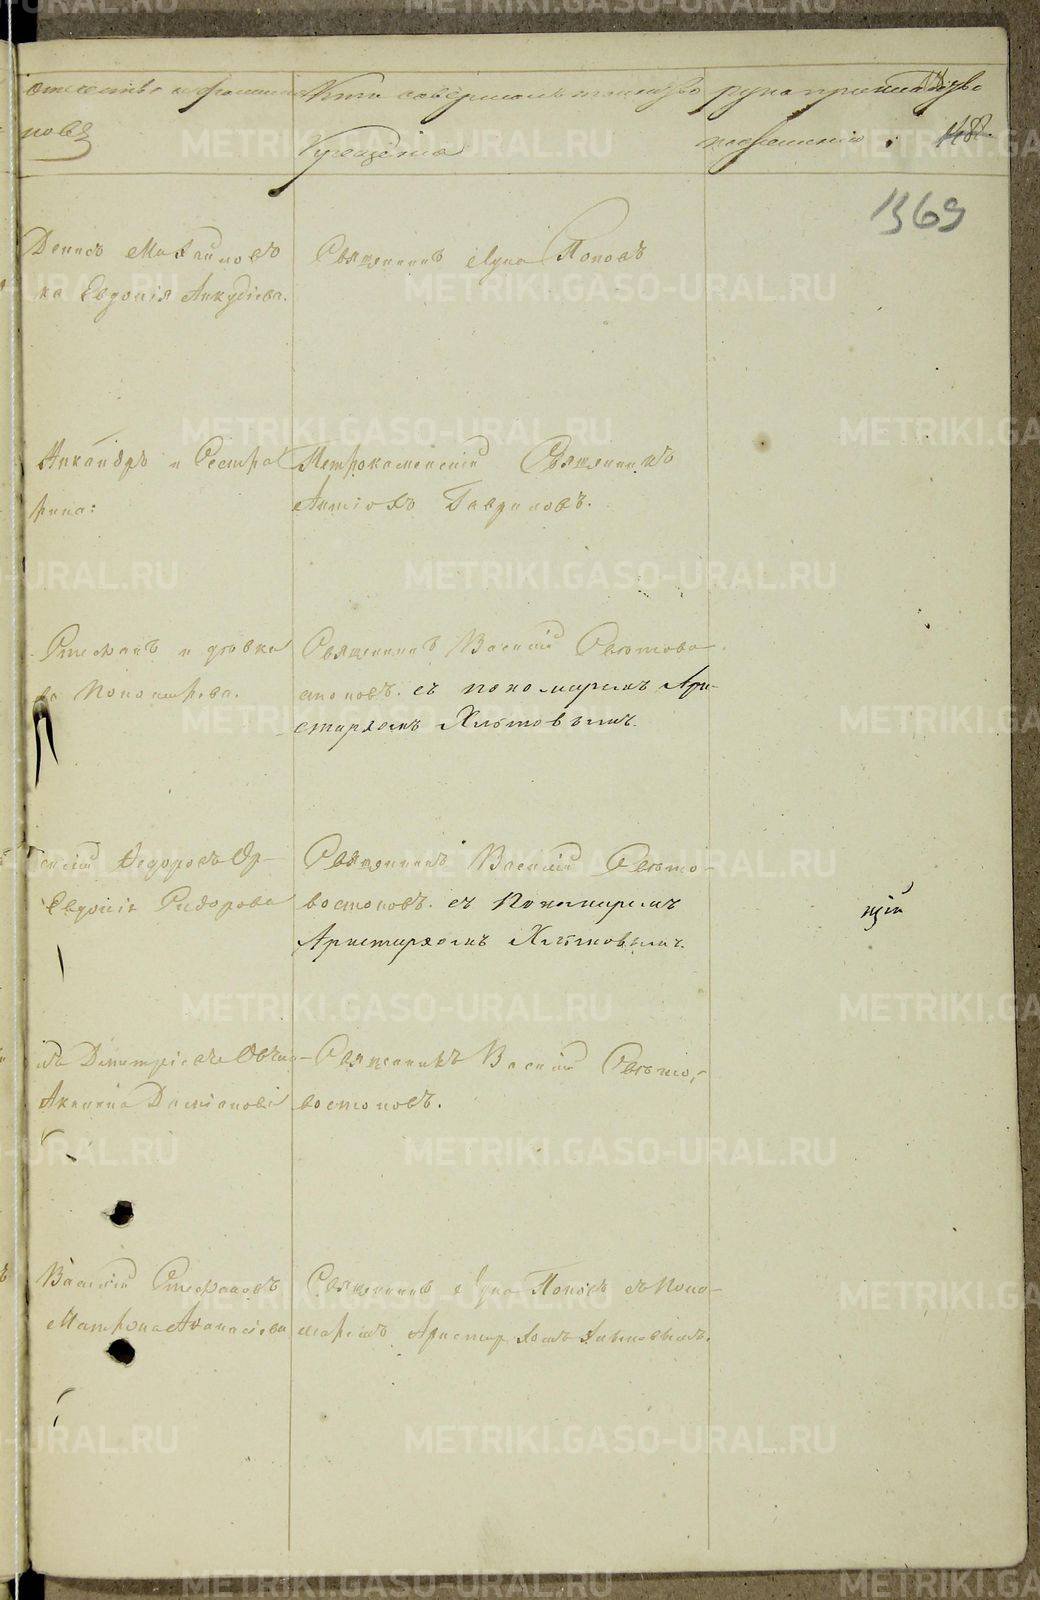 отечество и фамилия
новъ
Кто совершалъ таинство
Крещенія
рукоприкладство
по желанію
1369
Денисъ Михайловъ
ка Евдокія Анкудіева.
Священникъ Лука Поповъ
Никандръ и Сестра
рина:
Петрокаменскій Священникъ
Антіохъ Гавриловъ.
Стефанъ и дѣвка
Священникъ Василій Свѣтово
стоковъ. съ пономаремъ Ари-
стархомъ Хлыновымъ.
Ѳедоровъ Ор-
Евдокія Сидорова
Священникъ Василій Свѣто-
востоковъ. съ Пономаремъ
Аристархомъ Хлыновымъ.
Димитріевъ Овчи-
Акилина Даміанова
Священникъ Василій Свѣто-
востоковъ.
Василій Стефановъ
Матрона Аѳанасіева
Священникъ Лука Поповъ съ Поно-
маремъ Аристархомъ Хлыновымъ.
METRIKI.GASO-URAL.RU